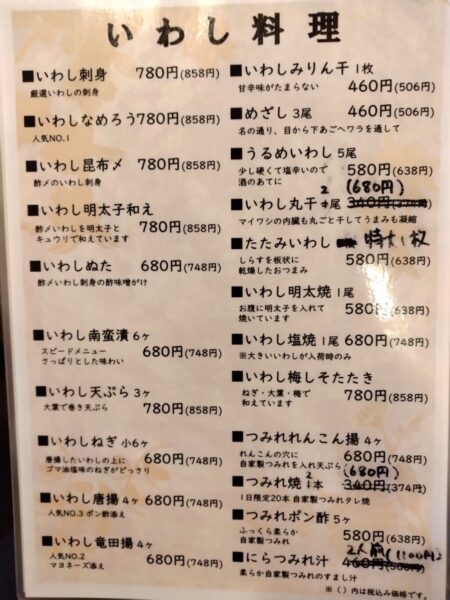 いわし料理
■いわし刺身 780円(858円)
厳選いわしの刺身
■いわしなめろう780円(858円)
人気NO.1
■いわし昆布〆 780円(858円)
酢〆のいわし刺身
■いわし明太子和え
酢〆いわしを明太子と
キュウリで和えています
780円(858円)
■いわしぬた 680円(748円)
酢〆いわし刺身の酢味噌がけ
■いわし南蛮漬 6ヶ
スピードメニュー
さっぱりとした味わい
680円(748円)
■いわし天ぷら 3ヶ
大葉で巻き天ぷら
780円(858円)
■いわしねぎ 小6ヶ
唐揚したいわしの上に
ゴマ油塩味のねぎがどっさり
680円(748円)
■いわし唐揚 4ヶ
人気NO.3 ポン酢添え
680円(748円)
■いわし竜田揚 4ヶ
人気NO.2
マヨネーズ添え
680円(748円)
■いわしみりん干 1枚
甘辛味がたまらない
460円(506円)
■めざし 3尾 460円(506円)
名の通り、目から下あごへワラを通して
■うるめいわし 5尾
少し硬くて塩辛いので
酒のあてに
580円(638円)
■いわし丸干 2尾 (680円)
340円
マイワシの内臓も丸ごと干してうまみも凝縮
■たたみいわし 特大1枚
しらすを板状に
乾燥したおつまみ
580円(638円)
■いわし明太焼 1尾
お腹に明太子を入れて
焼いています
580円(638円)
■いわし塩焼 1尾 680円(748円)
※大きいいわしが入荷時のみ
■いわし梅しそたたき
ねぎ・大葉・梅で
和えています
780円(858円)
■つみれれんこん揚 4ヶ
れんこんの穴に
自家製つみれを入れ天ぷら
680円(748円)
■つみれ焼 2本 (680円)
340円(374円)
1日限定20本 自家製つみれタレ焼
■つみれポン酢 5ヶ
ふっくら柔らか
自家製つみれ
580円(638円)
■にらつみれ汁 2人前(1100円)
460円(506円)
柔らか自家製つみれのすまし汁
※( )内は税込み価格です。